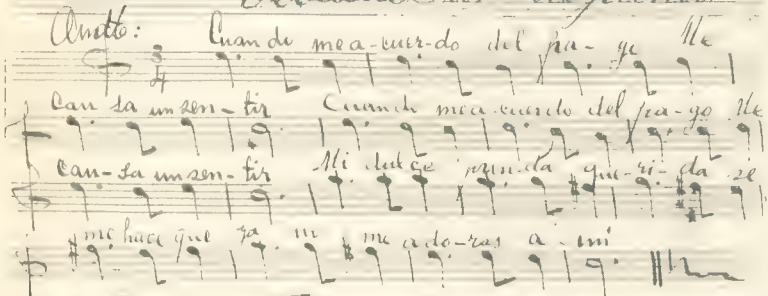 Cuando me a-cuer-do del pa-go Me
Cau-sa un sen-tir Cuando me a-cuerdo del pa-go Me
Cau-sa un sen-tir Mi dulce prenda que-ri-da se
me hace que ya ni me a do-ras a-mi